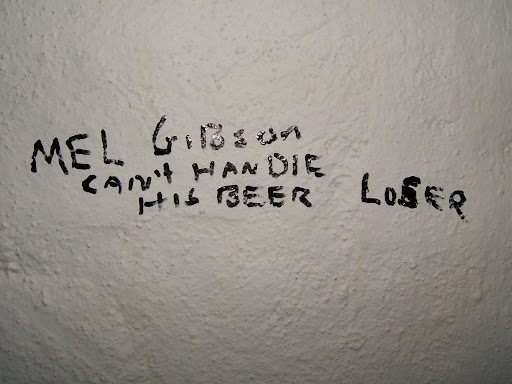 MEL GIBSON
CAN'T HANDLE
HIS BEER LOSER